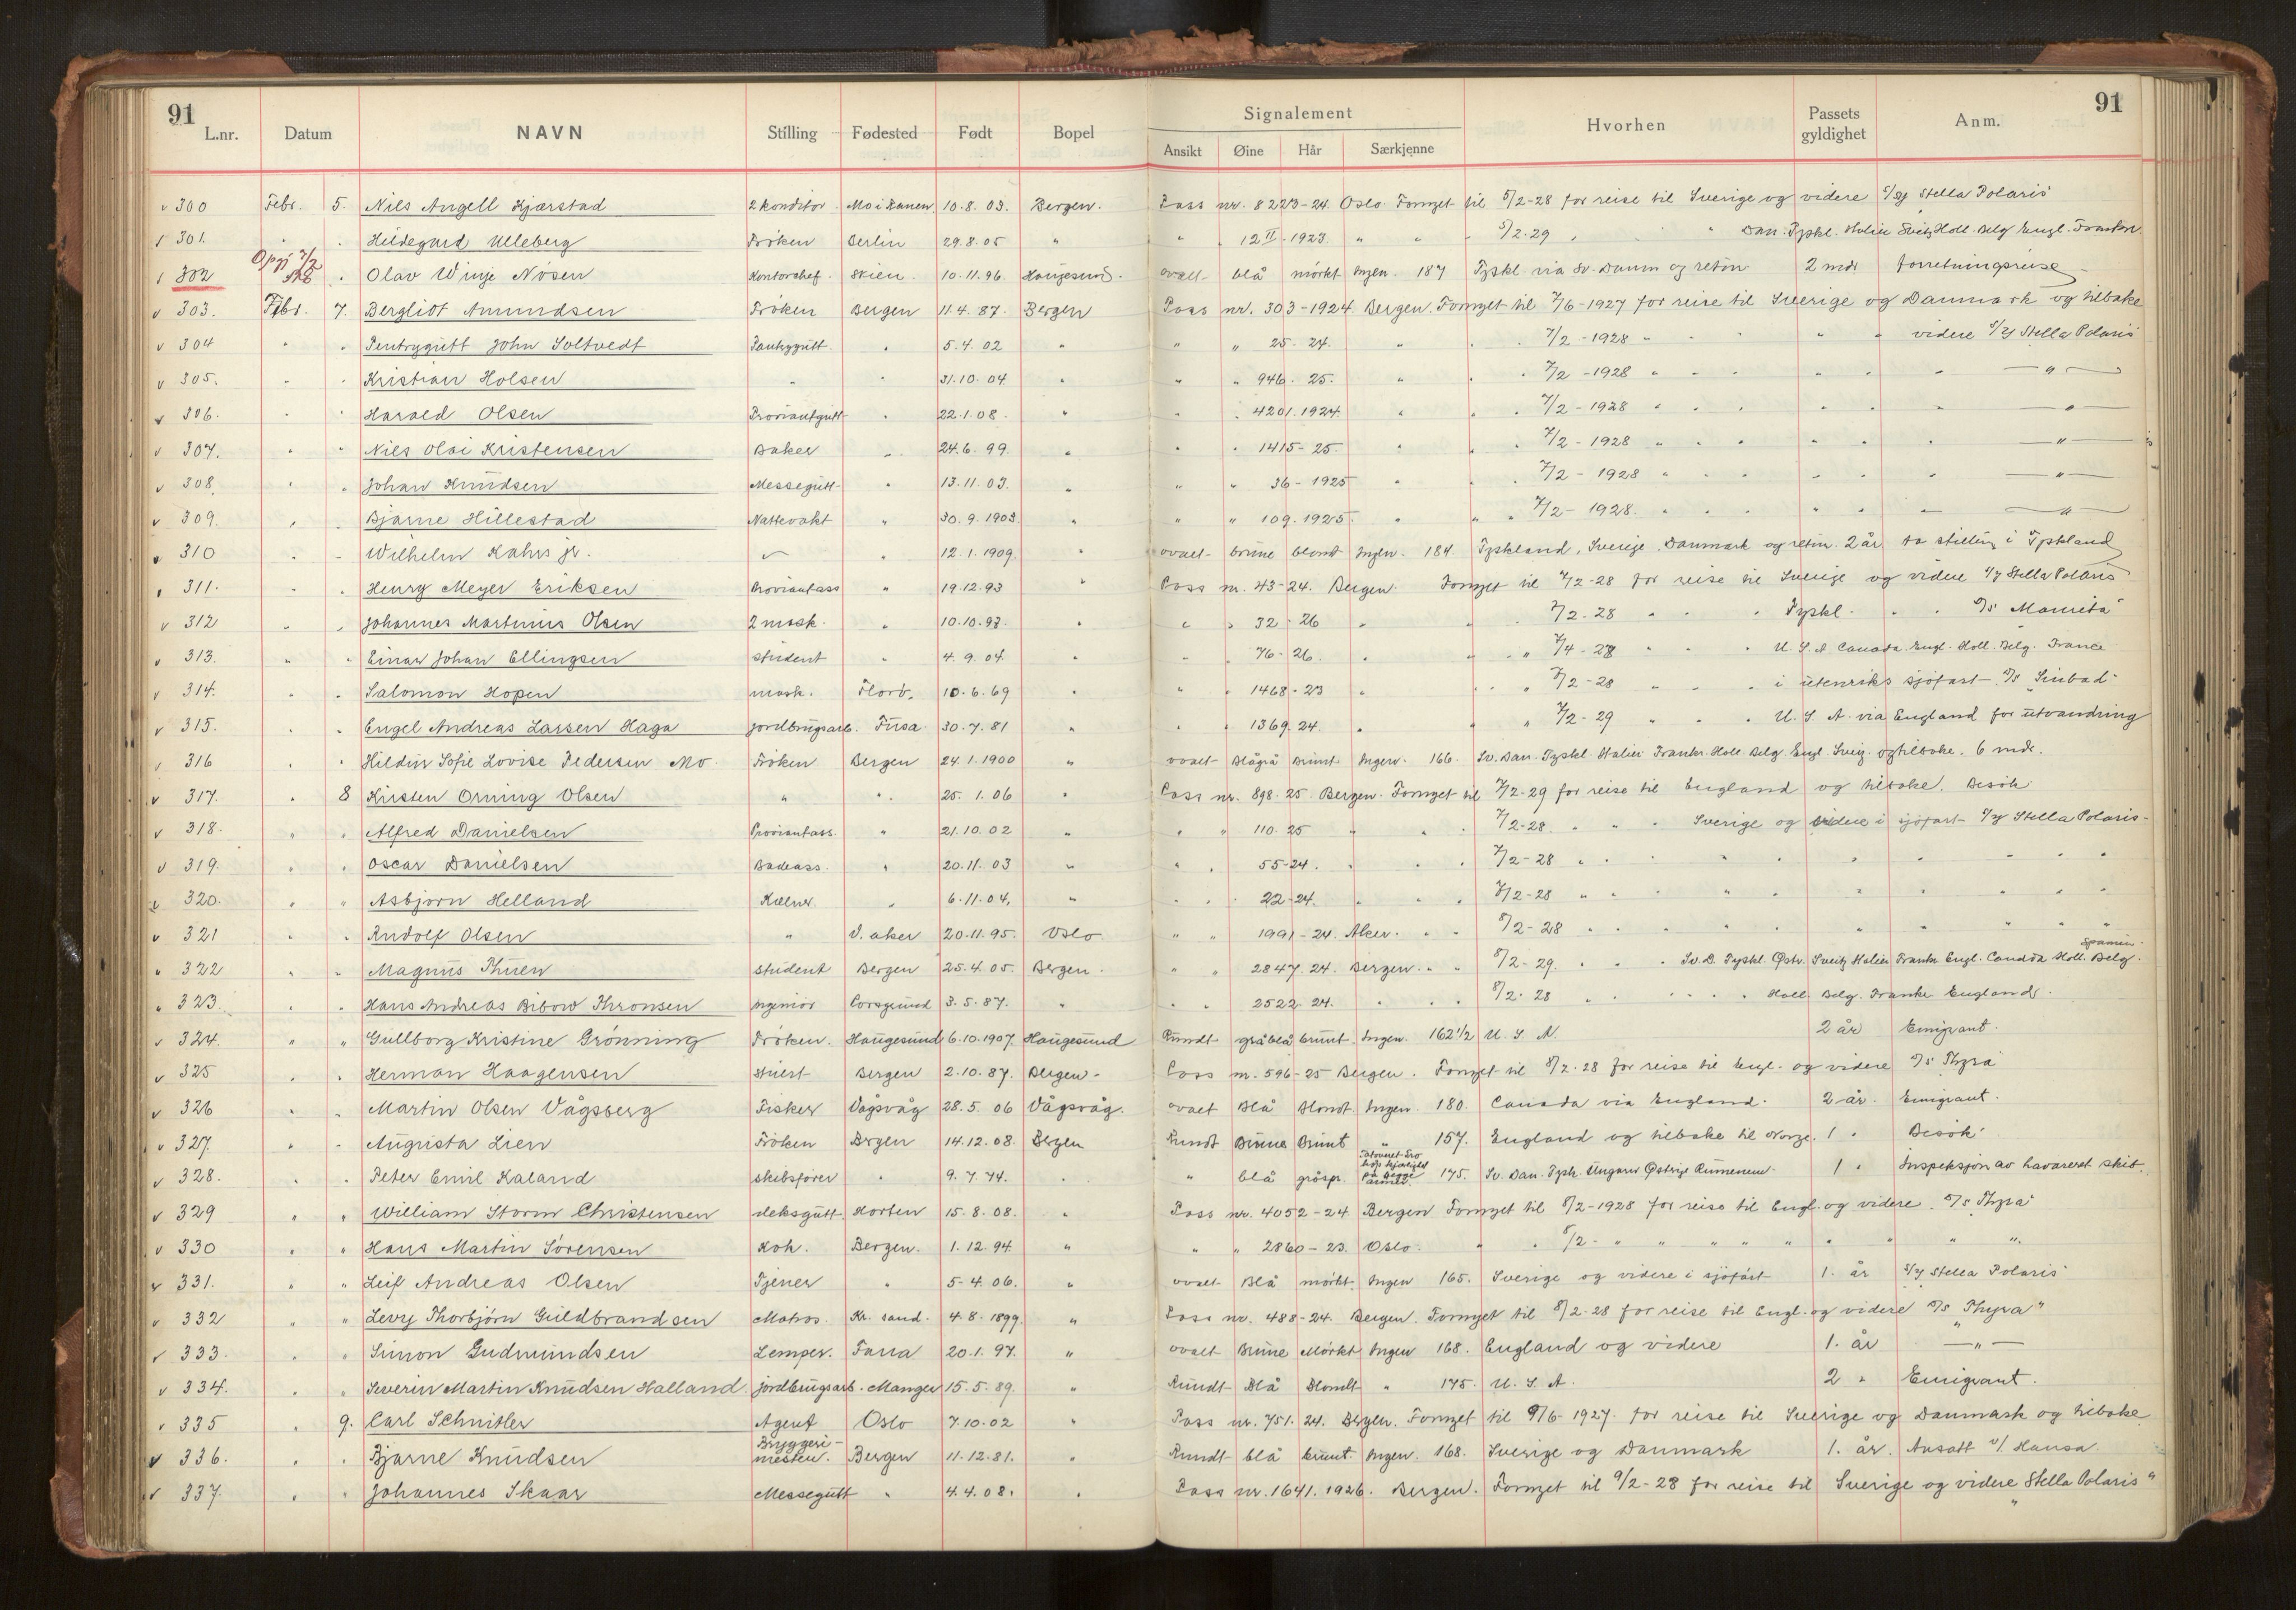 91 91
L.nr. Datum NAVN Stilling Fødested Født Bopel Signalement Hvorhen Passets gyldighet Anm.
Ansikt Øine Hår Særkjenne
300 Febr. 5. Nils Angell Kjærstad 2 konditor Mo i Ranen 10.8.03. Bergen. Pass nr. 8223-24. Oslo. Fornyet til 5/2-28 for reise til Sverige og videre S/Y Stella Polaris
301. " . Hildegard Ulleberg Frøken Berlin 29.8.05 " " 12 II-1923 " " 5/2-29 " Dan. Tyskl. Italien Sveitz Holl. Belg. Engl. Frankr.
302 . Olav Winje Nösen Kontorchef. Skien. 10.11.96. Haugesund. ovalt blå mörkt Ingen. 187 Tyskl. via Sv. Danm og retur 2 mdr forretningsreise
303. Febr. 7. Bergliot Amundsen Fröken Bergen 11.4.87. Bergen Pass nr. 303-1924. Bergen. Fornyet til 7/6-1927 for reise til Sverige og Danmark og tilbake
304 " . Pentrygutt John Soltvedt Pantrygutt. . 5.4.02 " " " 25-24. " . . 7/2-1928 " " " " videre S/Y Stella Polaris
305. " . Kristian Holsen " . 31.10.04. " " " 946-25. " . . 7/2-1928 " " " " " — " —
306. . . Harald Olsen Proviantgutt . 22.1.08. " " . 4201.1924. " . . 7/2-1928 " " " " " — " —
307. . " Nils Olai Kristensen Baker " 24.6.99. " . . 1415-25. . . . 7/2-1928 " " " " " — " —
308. . . Johan Knudsen Messegutt . 13.11.03. " " " 36-1925 . . . 7/2-1928 " " " " " — " —
309. . . Bjarne Hillestad Nattevakt " 30.9.1903. " " " 109.1925. . " . 7/2-1928. " " " " " — " —
310 . . Wilhelm Kahrs jr. — . 12.1.1909. " ovalt brune blondt Ingen. 184 Tyskland, Sverige, Danmark og retur. 2 år ta stilling i Tyskland
311. . . Henry Meyer Eriksen Proviantass " 19.12.93 " Pass nr. 43-24. Bergen. Fornyet til 7/2-28 for reise til Sverige og videre S/Y Stella Polaris
312 . . Johannes Martinus Olsen 2 mask. . 10.10.93. . " " 32-26 " . 7/2-28 " " " Tyskl. " "
313. " . Einar Johan Ellingsen student " 4.9.04. " " " 76-26. . . " 7/4-28 " " " U.S.A. Canada. Engl. Holl. Belg. France
314. " . Salomon Hopen mask. Florö. 10.6.69 . " . 1468-23 . . " 7/2-28 " " . i utenriks sjöfart D/S "Sinbad"
315. . . Engel Andreas Larsen Haga jordbrugsarb. Fusa. 30.7.81 " . . 1369.24. . . " 7/2-29 " " " U.S.A. via England for utvandring
316 . . Hildur Sofie Lovise Pedersen Mo. Fröken Bergen 24.1.1900 " ovalt Blågrå Brunt. Ingen. 166. Sv. Dan. Tyskl. Italien Frankr. Holl. Belg. Engl. Sveiz. og tilbake. 6 mdr.
317. . 8 Kirsten Orning Olsen " ". 25.1.06 " Pass nr. 898-25 Bergen. Fornyet til 7/2-29 for reise til England og tilbake. Besök
318. " . Alfred Danielsen Proviantass. " 21.10.02 " " " 110-25 " " . 7/2-28. " " " Sverige og videre i sjöfart S/Y Stella Polaris
319. . . Oscar Danielsen Badeass. . 20.11.03 " " . 55-24. . . . 7/2-28 " " " " " " " " "
320. . " Asbjørn Helland Kelner. " 6.11.04. " . . 22-24. . . . 7/2-28 " " " " " " " " "
321 . . Rudolf Olsen " V. aker 20.11.95. Oslo " " 1991-24. Aker. . . 8/2-28 " " " " " " " " "
322 . . Magnus Thuen student Bergen 25.4.05. Bergen. " " 2847.24. Bergen. " " 8/2-29. " " " Sv. D. Tyskl. Østr. Sveitz Italien Frankr. Engl. Canada Holl. Belg. Spanien.
323. . . Hans Andreas Bibow Thronsen ingeniør Porsgrund 3.5.87. " . . 2522-24. . . . 8/2-28 " " " " Holl. Belg. Frankr. England.
324. " " Gullborg Kristine Grönning Fröken. Haugesund 6.10.1907. Haugesund Rundt gråblå brunt Ingen. 162½ U.S.A. 2 år Emigrant.
325 . . Herman Haagensen Stuert Bergen 2.10.87. Bergen. Pass nr. 596-25 Bergen. Fornyet til 8/2-28 for reise til Engl. og videre D/S Thyra
326 . . Martin Olsen Vågsberg Fisker Vågsvåg 28.5.06 Vågsvåg. ovalt Blå Blondt Ingen. 180. Canada via England. 2 år. Emigrant.
327. . . Augusta Lien Fröken Bergen 14.12.08. Bergen Rundt Brune Brunt " 157. England og tilbake til Norge. 1 " Besök
328. . . Peter Emil Kaland skibsförer . 9.7.74. . " blå gråspr. Tatoveret tro håp kjærlighet på begge armer. 175. Sv. Dan. Tysk. Ungarn Østrige Rumenien. 1 " Inspeksjon av havareret skib.
329 " . William Storm Christensen deksgutt Horten 15.8.08. " Pass nr. 4052-24 Bergen Fornyet til 8/2-1928 for reise til Engl. og videre. D/S Thyra
330 . " Hans Martin Sörensen Kok. Bergen. 1.12.94. " " " 2860-23. Oslo. " . 8/2- " " " " " " " " "
331. . " Leif Andreas Olsen Tjener " 5-4.06. " ovalt Blå mörkt. Ingen 165. Sverige og videre i sjöfart 1. år S/Y Stella Polaris
332 " " Levy Thorbjørn Guldbrandsen Matros. Kr. sand. 4.8.1899. " Pass nr. 488-24. Bergen. Fornyet til 8/2-28 for reise til Engl. og videre D/S "Thyra"
333. . " Simon Gudmundsen Lemper. Fana 20.1.97. " ovalt Brune Mörkt Ingen 168. England og videre 1. år — " —
334. . " Severin Martin Knudsen Halland jordbrugsarb. Manger 15.5.89. " Rundt Blå Blondt " 175. U.S.A. 2 " Emigrant.
335 . 9. Carl Schnitler Agent Oslo 7.10.02 " Pass nr. 751.24. Bergen. Fornyet til 9/6-1927. for reise til Sverige og Danmark og tilbake
336. . . Bjarne Knudsen Bryggerimester. Bergen 11.12.81. . Rundt blå brunt. Ingen. 168. Sverige og Danmark 1. år. Ansatt v/ Hansa.
337. . " Johannes Skaar Messegutt " 4.4.08. . Pass nr. 1641.1926. Bergen. Fornyet til 9/2-28 for reise til Sverige og videre "Stella Polaris"